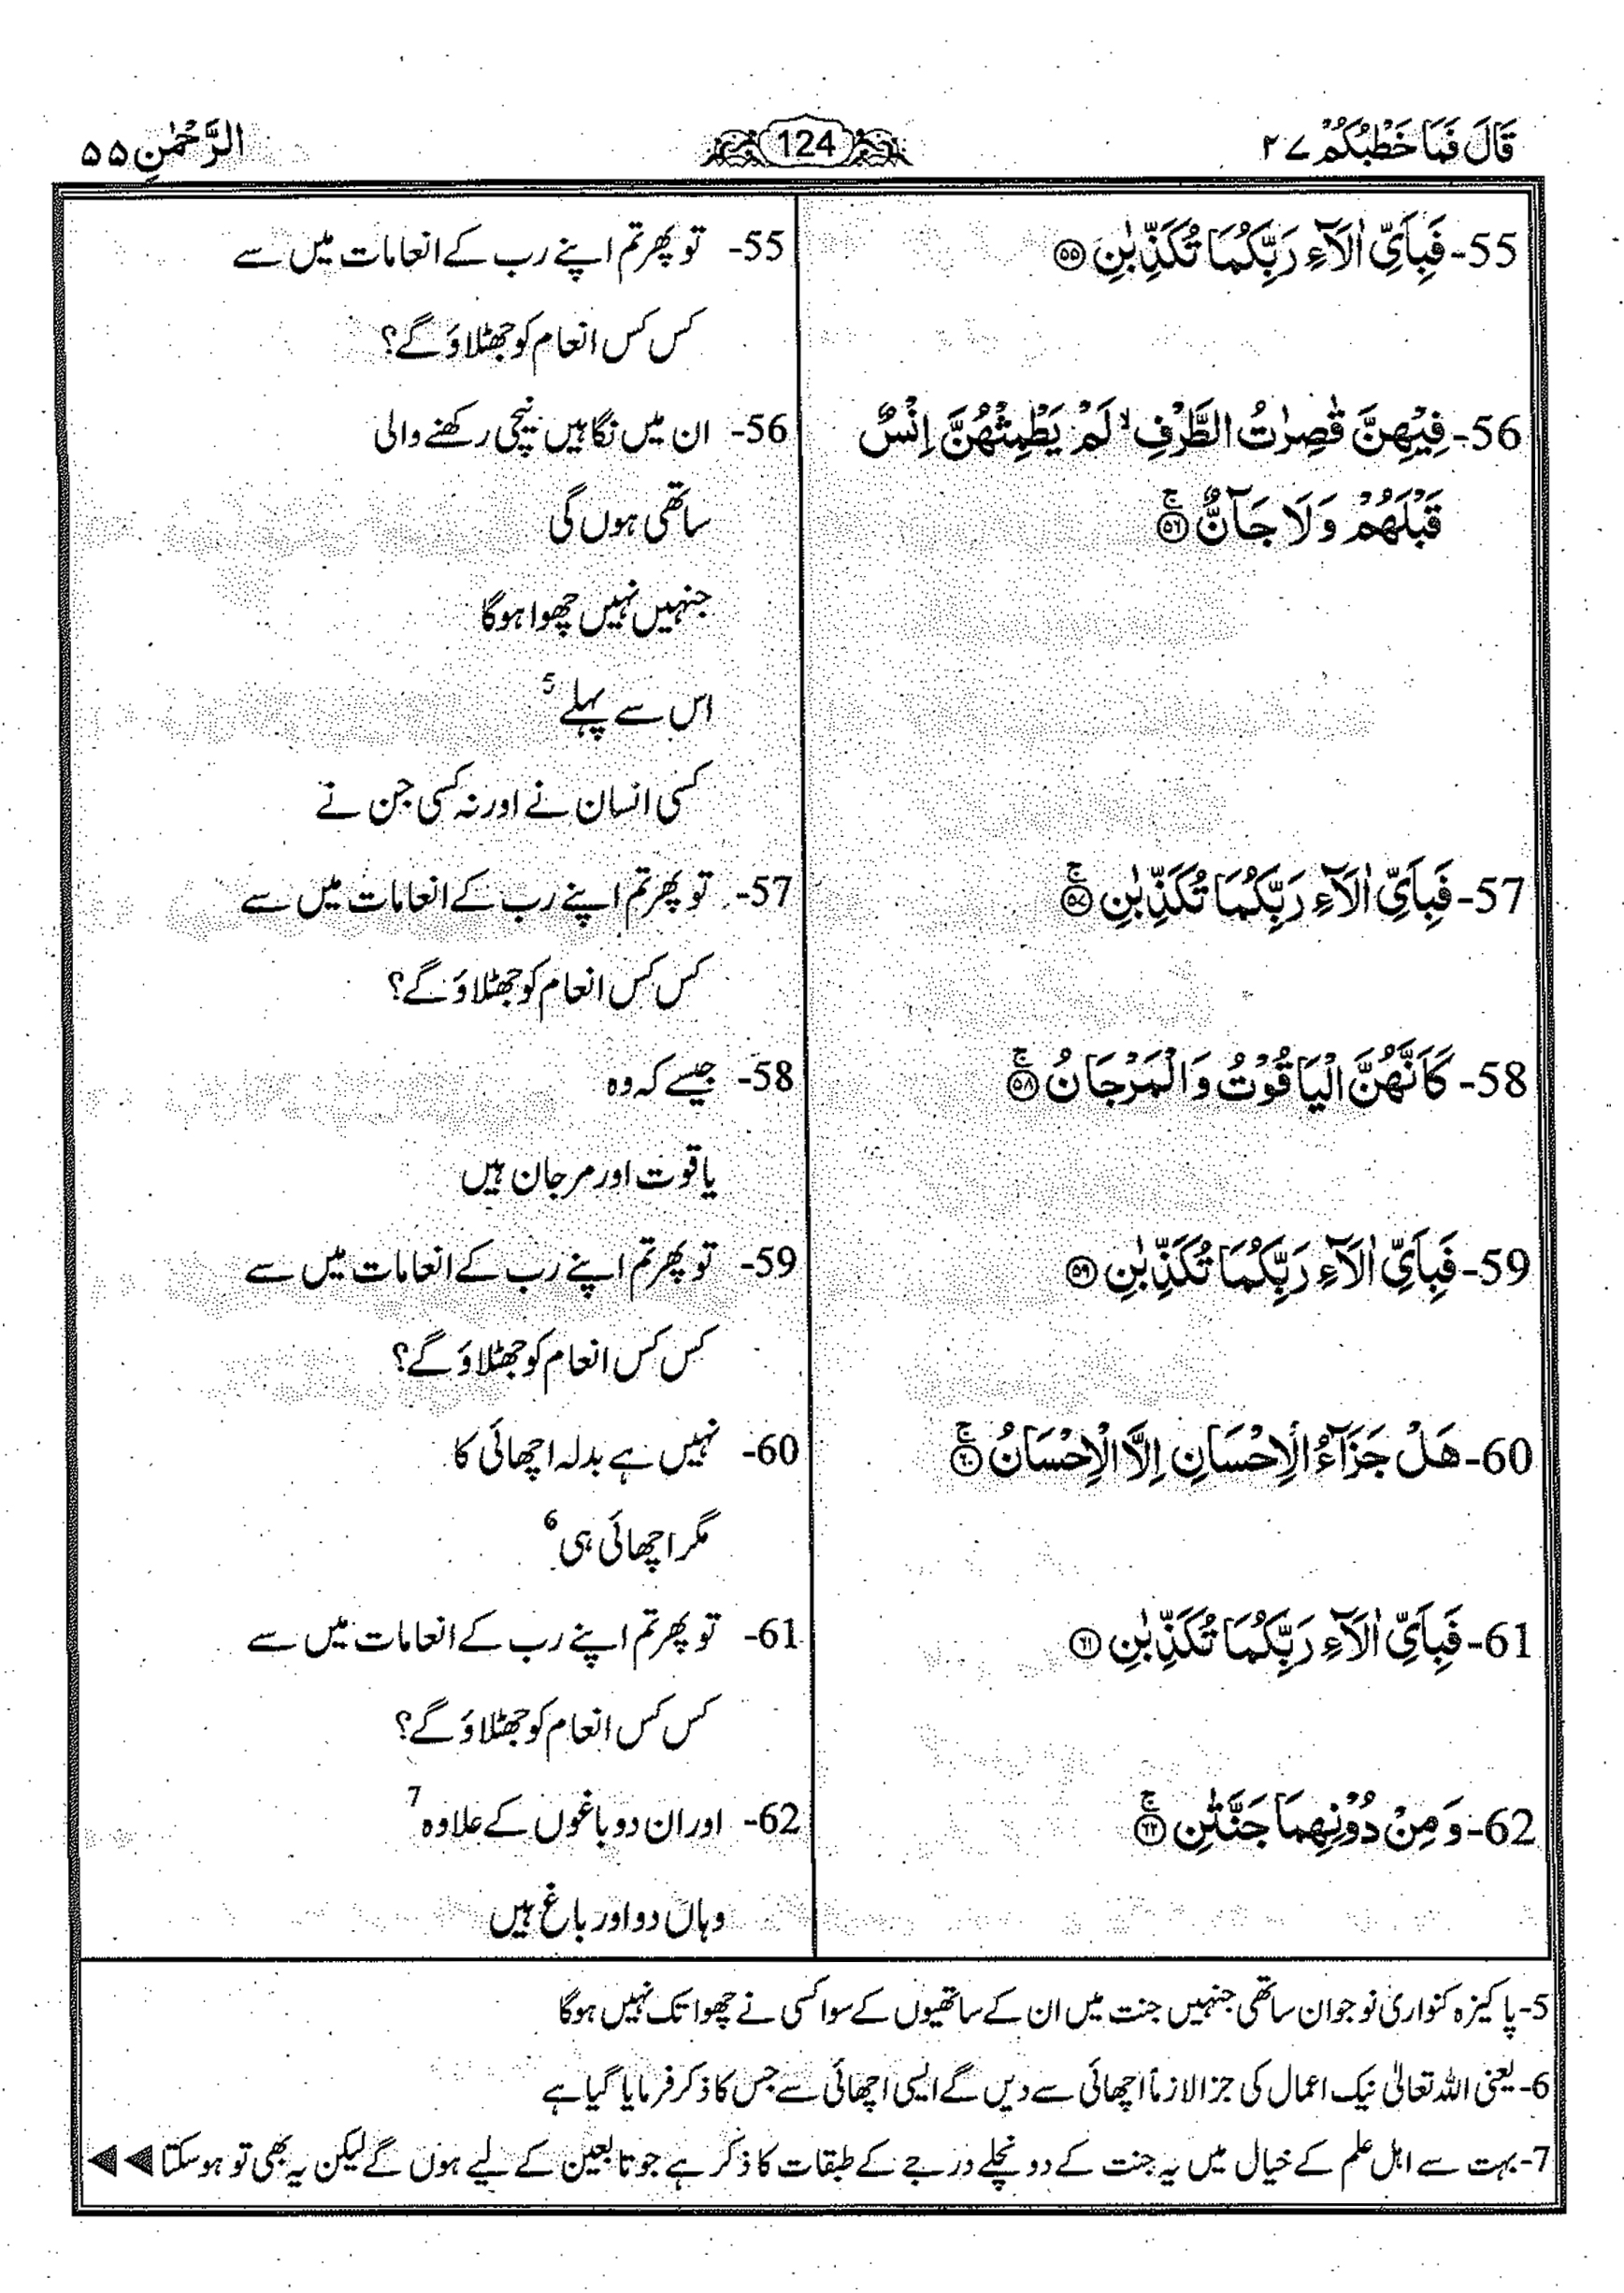 قَالَ فَمَا خَطْبُكُمْ ٢٧
124
الرَّحْمٰنِ ٥٥
55- فَبِاَیِّ اٰلَآءِ رَبِّكُمَا تُكَذِّبٰنِ ﴿۵۵﴾
56- فِیْهِنَّ قٰصِرٰتُ الطَّرْفِ ۙ لَمْ یَطْمِثْهُنَّ اِنْسٌ
قَبْلَهُمْ وَ لَا جَآنٌّ ﴿۵۶﴾ۚ
57- فَبِاَیِّ اٰلَآءِ رَبِّكُمَا تُكَذِّبٰنِ ﴿۵۷﴾ۚ
58- كَاَنَّهُنَّ الْیَاقُوْتُ وَ الْمَرْجَانُ ﴿۵۸﴾ۚ
59- فَبِاَیِّ اٰلَآءِ رَبِّكُمَا تُكَذِّبٰنِ ﴿۵۹﴾
60- هَلْ جَزَآءُ الْاِحْسَانِ اِلَّا الْاِحْسَانُ ﴿۶۰﴾ۚ
61- فَبِاَیِّ اٰلَآءِ رَبِّكُمَا تُكَذِّبٰنِ ﴿۶۱﴾
62- وَ مِنْ دُوْنِهِمَا جَنَّتٰنِ ﴿۶۲﴾ۚ
55- تو پھر تم اپنے رب کے انعامات میں سے
کس کس انعام کو جھٹلاؤ گے؟
56- ان میں نگاہیں نیچی رکھنے والی
ساتھی ہوں گی
جنہیں نہیں چھوا ہوگا
اس سے پہلے 5
کسی انسان نے اور نہ کسی جن نے
57- تو پھر تم اپنے رب کے انعامات میں سے
کس کس انعام کو جھٹلاؤ گے؟
58- جیسے کہ وہ
یاقوت اور مرجان ہیں
59- تو پھر تم اپنے رب کے انعامات میں سے
کس کس انعام کو جھٹلاؤ گے؟
60- نہیں ہے بدلہ اچھائی کا
مگر اچھائی ہی 6
61- تو پھر تم اپنے رب کے انعامات میں سے
کس کس انعام کو جھٹلاؤ گے؟
62- اور ان دو باغوں کے علاوہ 7
وہاں دو اور باغ ہیں
5- پاکیزہ کنواری نوجوان ساتھی جنہیں جنت میں ان کے ساتھیوں کے سوا کسی نے چھوا تک نہیں ہوگا
6- یعنی اللہ تعالیٰ نیک اعمال کی جزا لازماً اچھائی سے دیں گے ایسی اچھائی سے جس کا ذکر فرمایا گیا ہے
7- بہت سے اہل علم کے خیال میں یہ جنت کے دو نچلے درجے کے طبقات کا ذکر ہے جو تابعین کے لیے ہوں گے لیکن یہ بھی تو ہو سکتا ◀◀